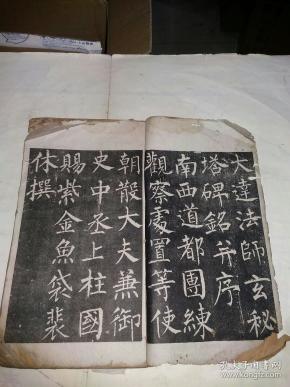 大達法師玄秘
塔碑銘并序
南西道都團練
觀察處置等使
朝散大夫兼御
史中丞上柱國
賜紫金魚袋裴
休撰